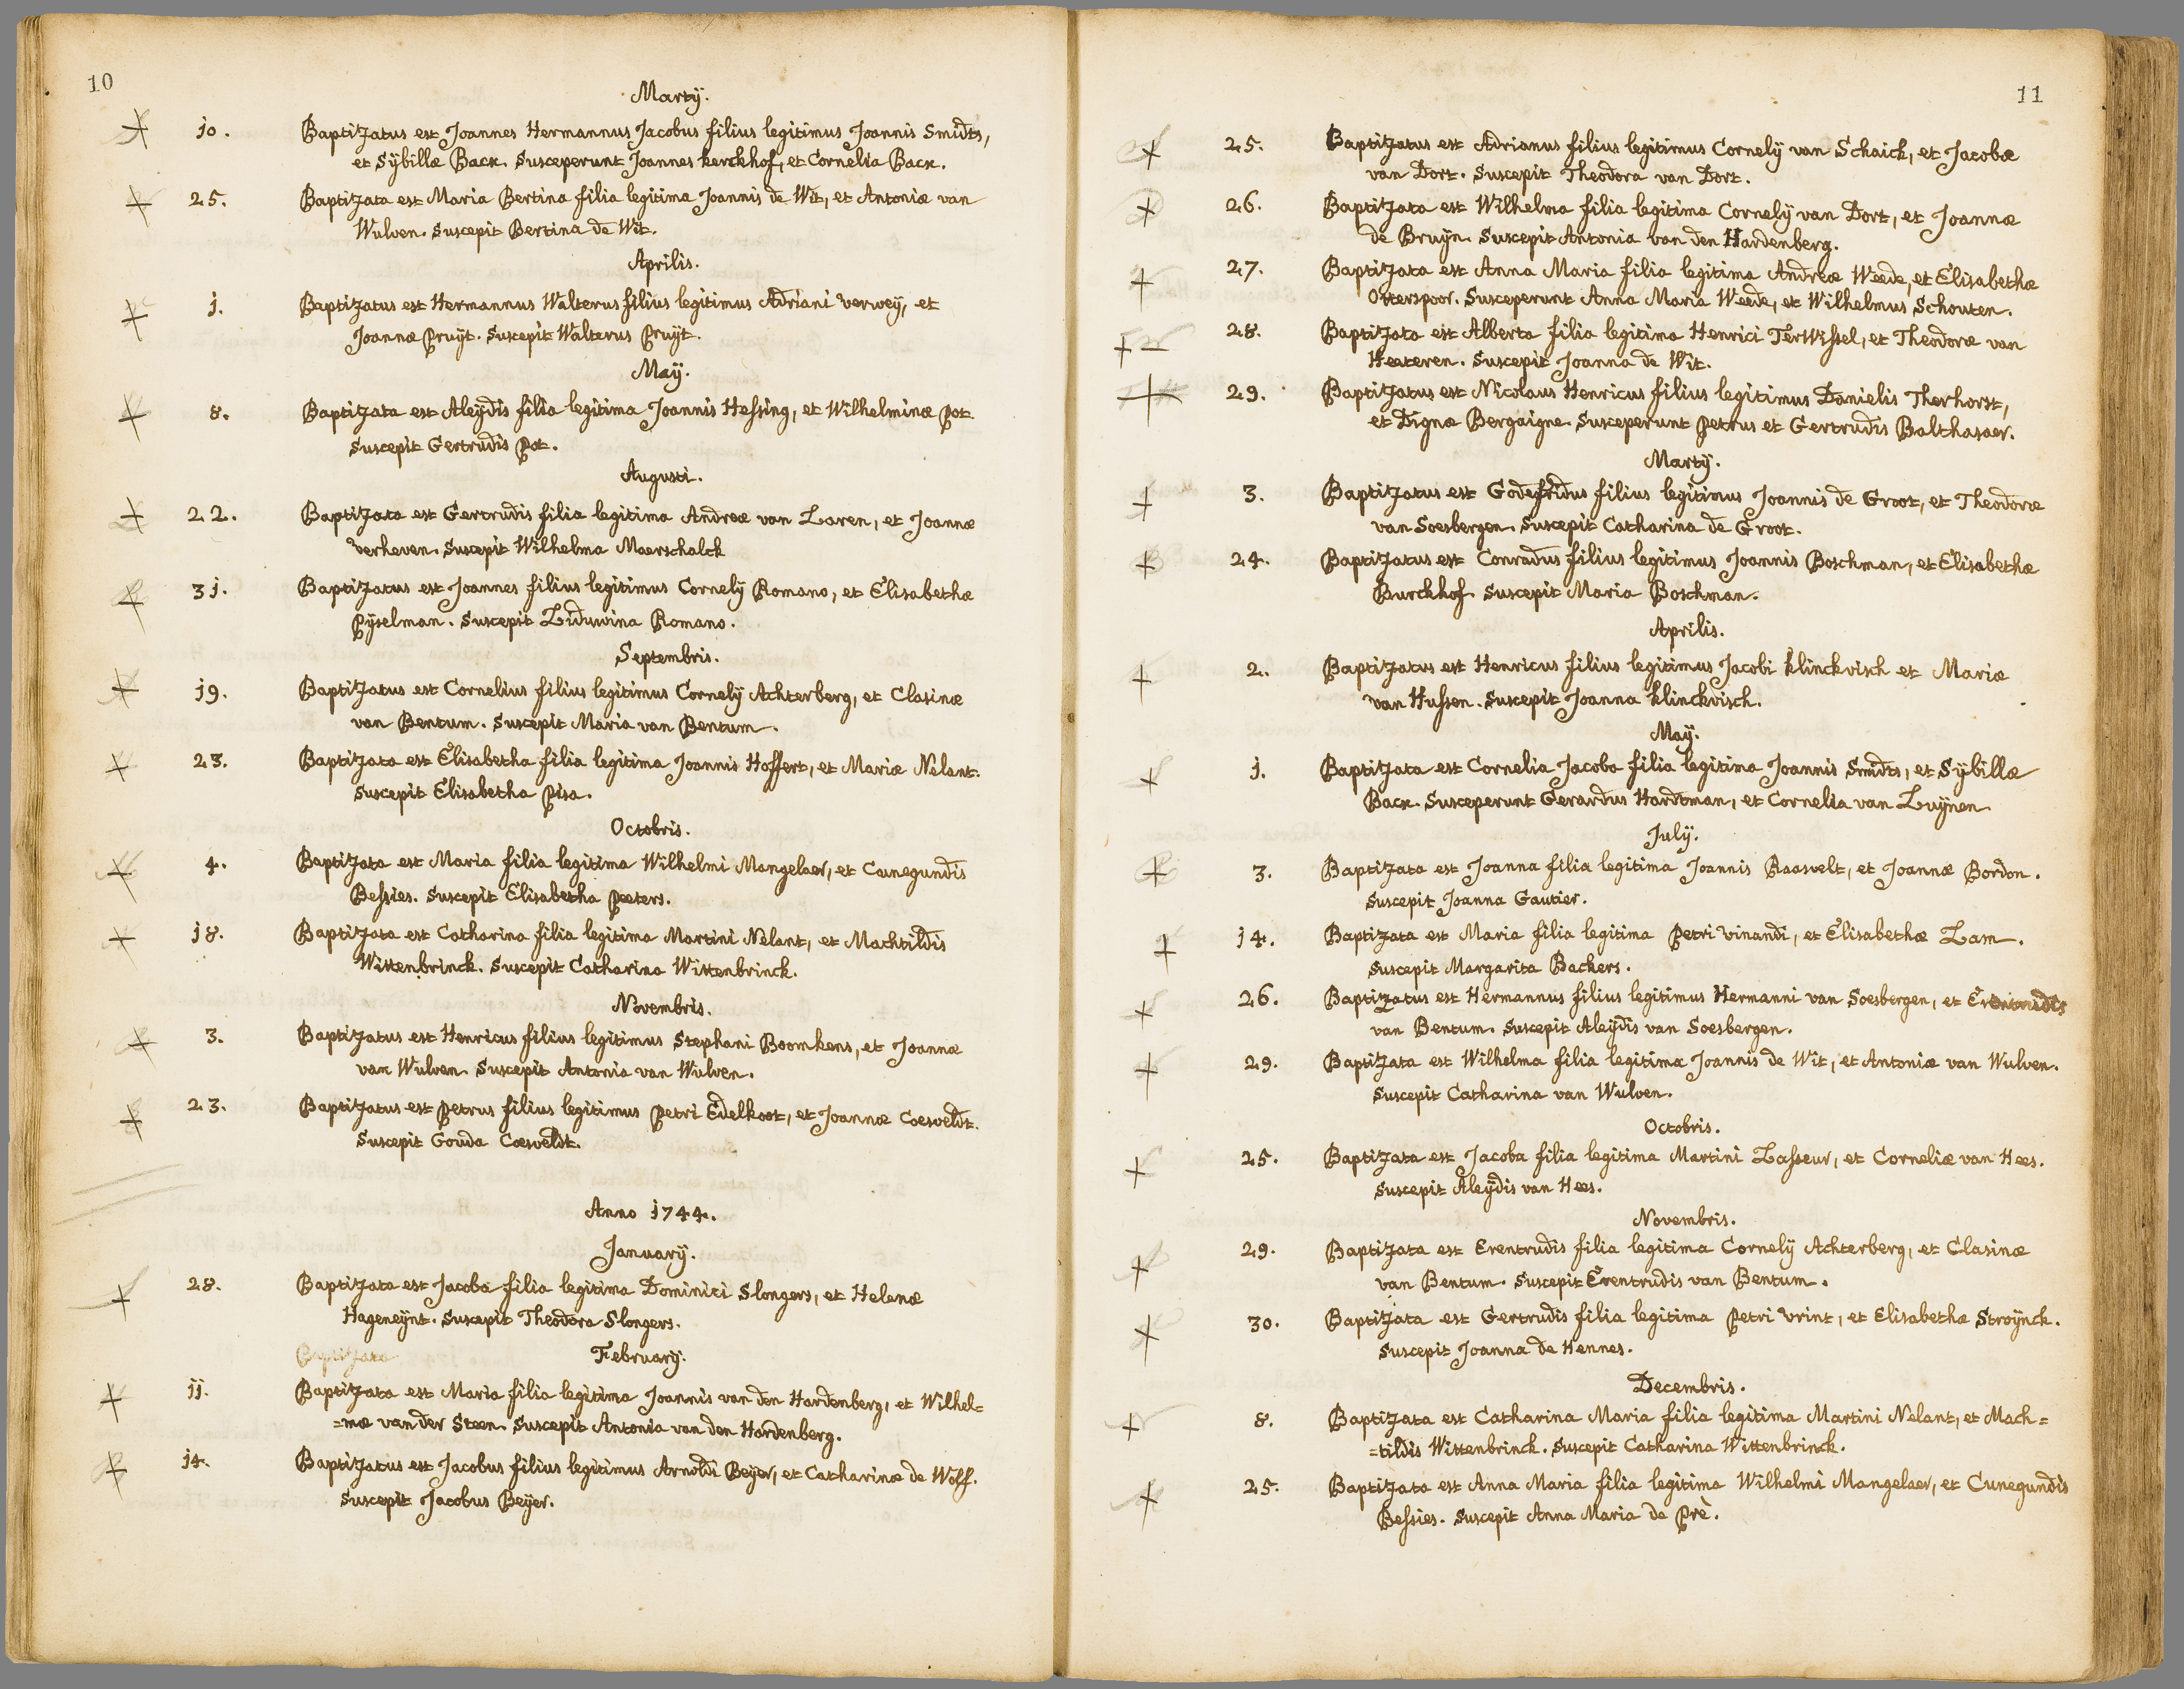 10
Martÿ.
jo. Baptizatus est Joannes Hermannus Jacobus filius legitimus Joannis Smidts,
et Sÿbillæ Bacx. Susceperunt Joannes kerckhof, et Cornelia Bacx.
25. Baptizata est Maria Bertina filia legitima Joannis de Wit, et Antoniæ van
Wulven. Suscepit Bertina de Wit.
Aprilis.
j. Baptizatus est Hermannus Walterus filius legitimus Adriani verweÿ, et
Joannæ Pruÿt. Suscepit Walterus Pruÿt.
Maÿ.
8. Baptizata est Aleÿdis filia legitima Joannis Hessing, et Wilhelminæ Pot.
Suscepit Gertrudis Pot.
Augusti.
22. Baptizata est Gertrudis filia legitima Andreæ van Laren, et Joannæ
verheven. Suscepit Wilhelma Maerschalck
3j. Baptizatus est Joannes filius legitimus Cornelÿ Romano, et Elisabethæ
Pÿselman. Suscepit Liduwina Romano.
Septembris.
j9. Baptizatus est Cornelius filius legitimus Cornelÿ Achterberg, et Clasinæ
van Bentum. Suscepit Maria van Bentum.
23. Baptizata est Elisabetha filia legitima Joannis Hoffert, et Mariæ Nelant.
Suscepit Elisabetha Pisa.
Octobris.
4. Baptizata est Maria filia legitima Wilhelmi Mangelaer, et Cunegundis
Bessies. Suscepit Elisabetha Peeters.
j8. Baptizata est Catharina filia legitima Martini Nelant, et Machtildis
Wittenbrinck. Suscepit Catharina Wittenbrinck.
Novembris.
3. Baptizatus est Henricus filius legitimus Stephani Boomkens, et Joannæ
van Wulven. Suscepit Antonia van Wulven.
23. Baptizatus est Petrus filius legitimus Petri Edelkoot, et Joannæ Coesveldt.
Suscepit Gouda Coesveldt.
Anno j744.
Januarÿ.
28. Baptizata est Jacoba filia legitima Dominici Slongers, et Helenæ
Hageneÿnt. Suscepit Theodora Slongers.
Baptizata Februarÿ.
jj. Baptizata est Maria filia legitima Joannis van den Hardenberg, et Wilhel=
=mæ van der Steen. Suscepit Antonia van den Hardenberg.
j4. Baptizatus est Jacobus filius legitimus Arnoldi Beÿer, et Catharinæ de Wolf.
Suscepit Jacobus Beÿer.
11
25. Baptizatus est Adrianus filius legitimus Cornelÿ van Schaick, et Jacobæ
van Dort. Suscepit Theodora van Dort.
26. Baptizata est Wilhelma filia legitima Cornelÿ van Dort, et Joannæ
de Bruÿn. Suscepit Antonia van den Hardenberg.
27. Baptizata est Anna Maria filia legitima Andreæ Weede, et Elisabethæ
Otterspoor. Susceperunt Anna Maria Weede, et Wilhelmus Schouten.
28. Baptizata est Alberta filia legitima Henrici TerWissel, et Theodoræ van
Heeteren. Suscepit Joanna de Wit.
29. Baptizatus est Nicolaus Henricus filius legitimus Danielis Therhorst,
et Dignæ Bergaigne. Susceperunt Petrus et Gertrudis Balthasaer.
Martÿ.
3. Baptizatus est Godefridus filius legitimus Joannis de Groot, et Theodoræ
van Soesbergen. Suscepit Catharina de Groot.
24. Baptizatus est Conradus filius legitimus Joannis Boschman, et Elisabethæ
Burckhof. Suscepit Maria Boschman.
Aprilis.
2. Baptizatus est Henricus filius legitimus Jacobi klinckvisch et Mariæ
van Hussen. Suscepit Joanna klinckvisch.
Maÿ.
j. Baptizata est Cornelia Jacoba filia legitima Joannis Smidts, et Sÿbillæ
Bacx. Susceperunt Gerardus Hardtman, et Cornelia van Luÿnen.
Julÿ.
3. Baptizata est Joanna filia legitima Joannis Raasvelt, et Joannæ Bordon.
Suscepit Joanna Gautier.
j4. Baptizata est Maria filia legitima Petri vinandi, et Elisabethæ Lam.
Suscepit Margarita Backers.
26. Baptizatus est Hermannus filius legitimus Hermanni van Soesbergen, et
van Bentum. Suscepit Aleÿdis van Soesbergen.
29. Baptizata est Wilhelma filia legitima Joannis de Wit, et Antoniæ van Wulven.
Suscepit Catharina van Wulven.
Octobris.
25. Baptizata est Jacoba filia legitima Martini Lasseur, et Corneliæ van Hees.
Suscepit Aleÿdis van Hees.
Novembris.
29. Baptizata est Erentrudis filia legitima Cornelÿ Achterberg, et Clasinæ
van Bentum. Suscepit Erentrudis van Bentum.
30. Baptizata est Gertrudis filia legitima Petri vrint, et Elisabethæ Stroÿnck.
Suscepit Joanna de Hennes.
Decembris.
8. Baptizata est Catharina Maria filia legitima Martini Nelant, et Mach=
=tildis Wittenbrinck. Suscepit Catharina Wittenbrinck.
25. Baptizata est Anna Maria filia legitima Wilhelmi Mangelaer, et Cunegundis
Bessies. Suscepit Anna Maria de Prè.